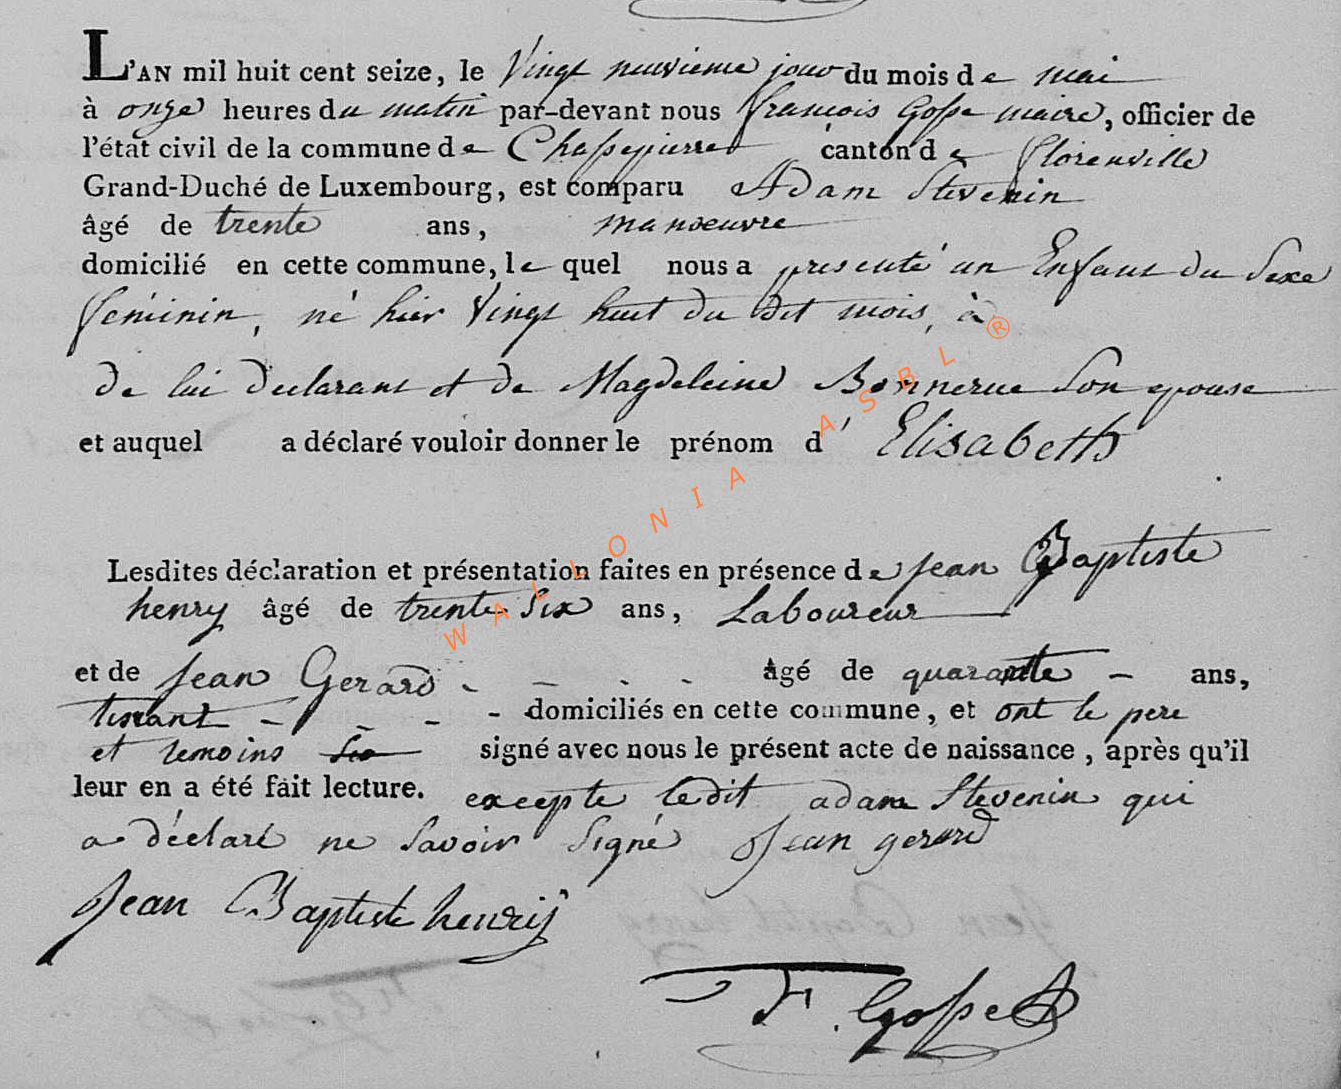 L'AN mil huit cent seize, le Vingt neuvieme jour du mois de mai
à onze heures du matin par-devant nous francois Gosse maire, officier de
l'état civil de la commune de Chassepierre canton de florenville
Grand-Duché de Luxembourg, est comparu Adam Stevenin
âgé de trente ans, manoeuvre
domicilié en cette commune, le quel nous a presenté un Enfant du Sexe
féminin, né hier Vingt huit du dit mois, à
de lui declarant et de Magdeleine Bonnerue Son epouse
et auquel a déclaré vouloir donner le prénom d' Elisabeth
Lesdites déclaration et présentation faites en présence de jean Baptiste
henry âgé de trente Six ans, Laboureur
et de jean Gerard - - - - âgé de quarante - ans,
tisrant - - - - domiciliés en cette commune, et ont le pere
et temoins signé avec nous le présent acte de naissance, après qu'il
leur en a été fait lecture. excepte ledit adam Stevenin qui
a déclaré ne Savoir Signé Jean gerard
Jean Baptiste henrij
F. Gosse
WALLONIA ASBL ®